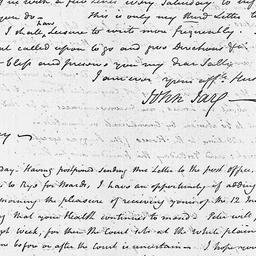 us with a few Lines every Saturday to
you do — this is only my third Letter to
have
I shall Leisure to write more frequently.
but called upon to go and give Directions
— Bless and preserve you my dear Sally
I am ever your aff.te Hus
John Jay —
day — Having postponed sending this Letter to the post office,
to Rye for Boards, I have an opportunity of adding
morning the pleasure of receiving yours of the 12 In
that your Health continued to mend —
week, for then the Court sits at the White plains
before or after the Court is uncertain — I hope